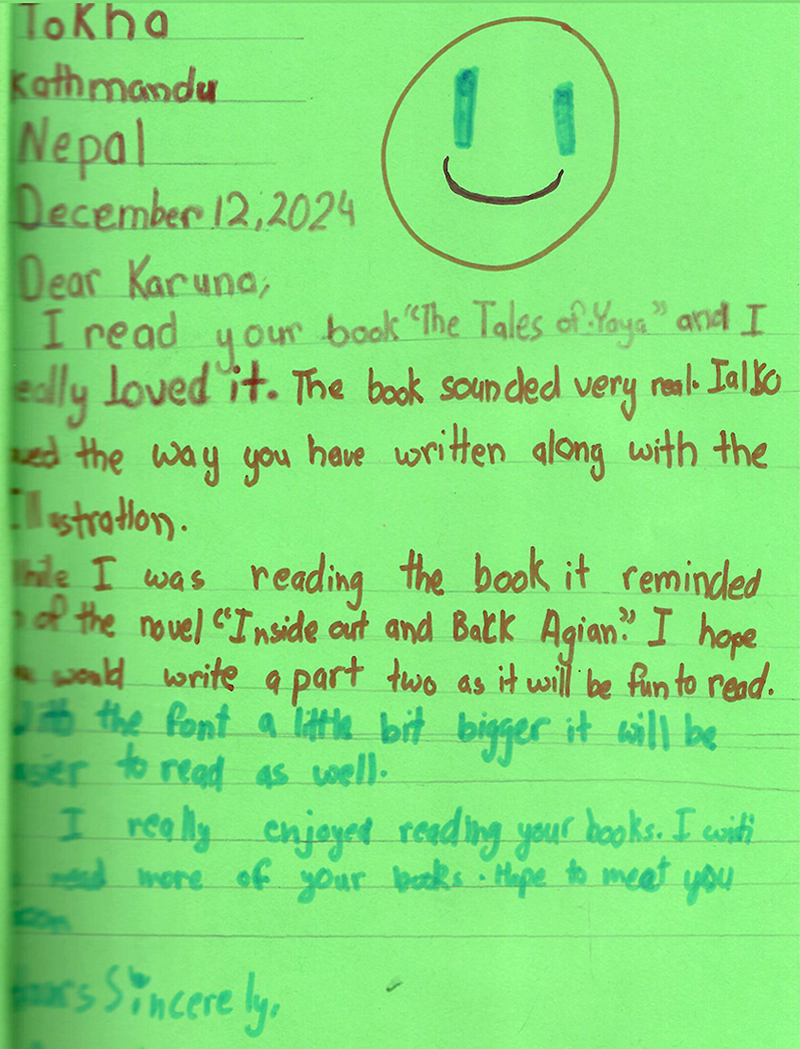 Tokha
Kathmandu
Nepal
December 12, 2024
Dear Karuna,
I read your book "The Tales of Yaya" and I
eally loved it. The book sounded very real. I also
the way you have written along with the
Illustration.
While I was reading the book it reminded
of the novel "Inside out and Back Agian". I hope
would write a part two as it will be fun to read.
With the font a little bit bigger it will be
asier to read as well.
I really enjoyed reading your books. I wish
read more of your books. Hope to meet you
oon
Yours Sincerely,